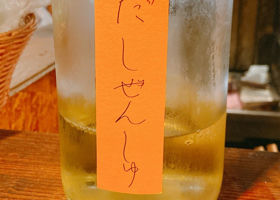 だしぜんしゅ